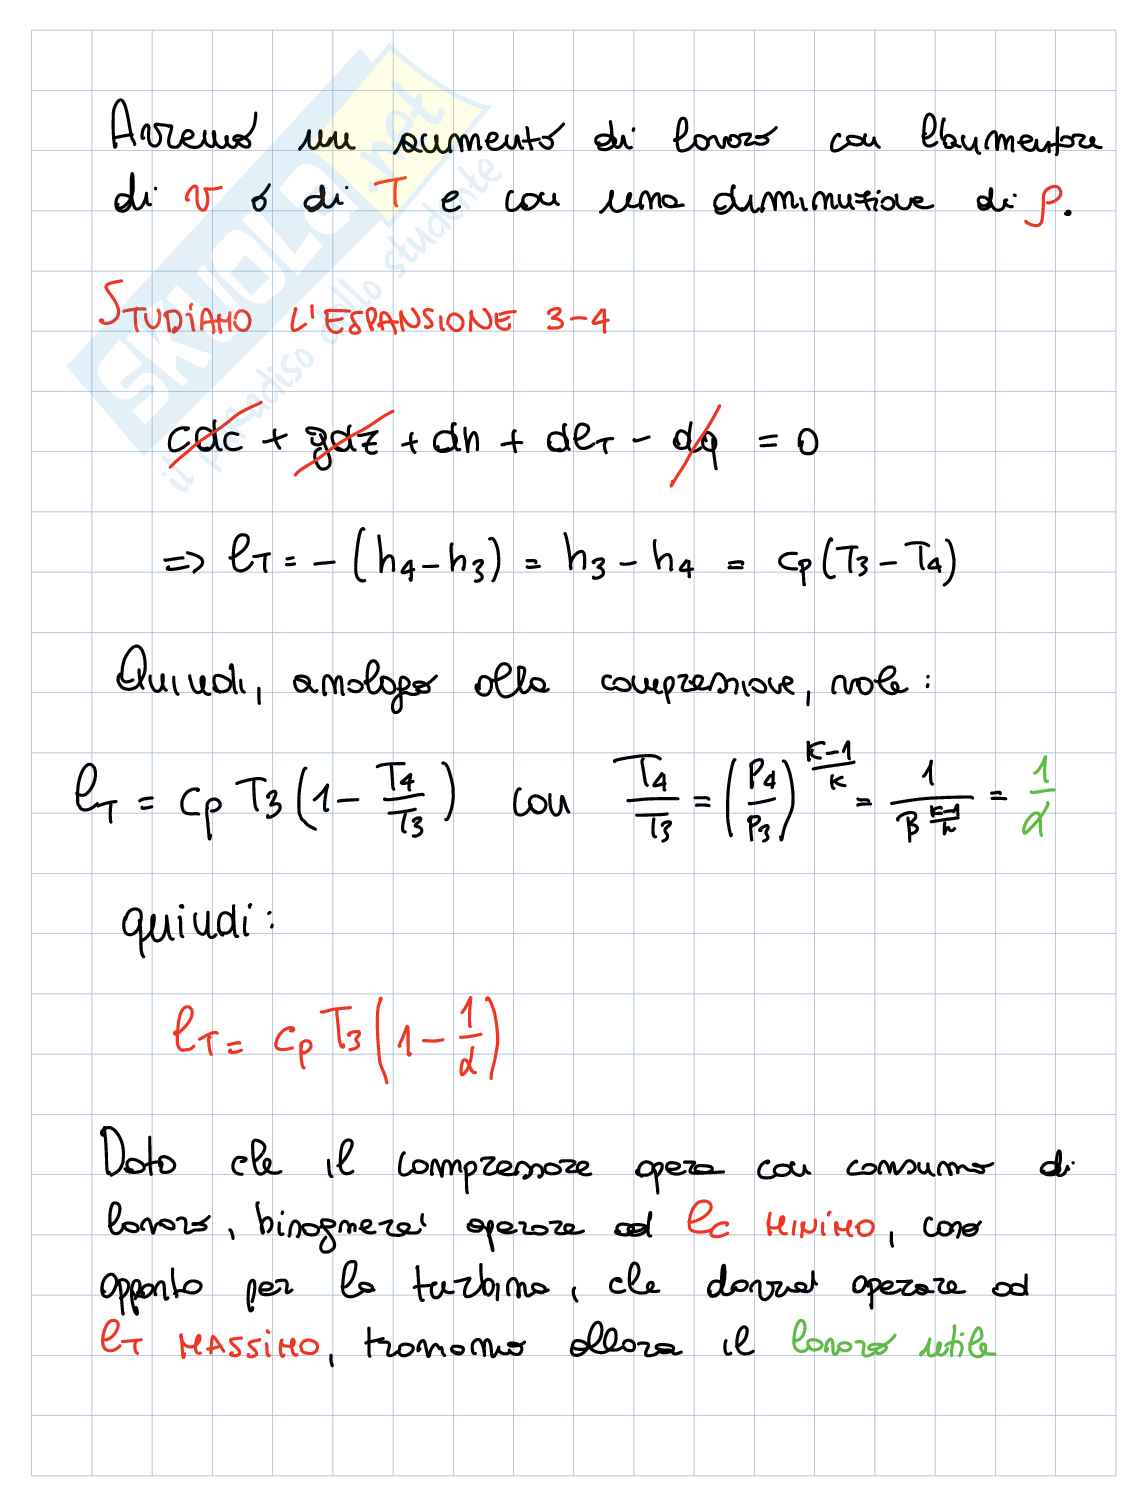 Avremo un aumento di lavoro con l'aumentare
di v o di T e con una diminuzione di ρ.
STUDIAMO L'ESPANSIONE 3-4
cdc + gdz + dh + dlT - dq = 0
=> lT = - (h4 - h3) = h3 - h4 = cp (T3 - T4)
Quindi, analogo alla compressione, vale:
lT = cp T3 (1 - T4/T3) con T4/T3 = (P4/P3)^((k-1)/k) = 1/β^((k-1)/k) = 1/α
quindi:
lT = cp T3 (1 - 1/α)
Dato che il compressore opera con consumo di
lavoro, bisognera' operare ad lc MINIMO, caso
opposto per la turbina, che dovra' operare ad
lT MASSIMO, troviamo allora il lavoro utile
SKUOLA.net
il paradiso dello studente